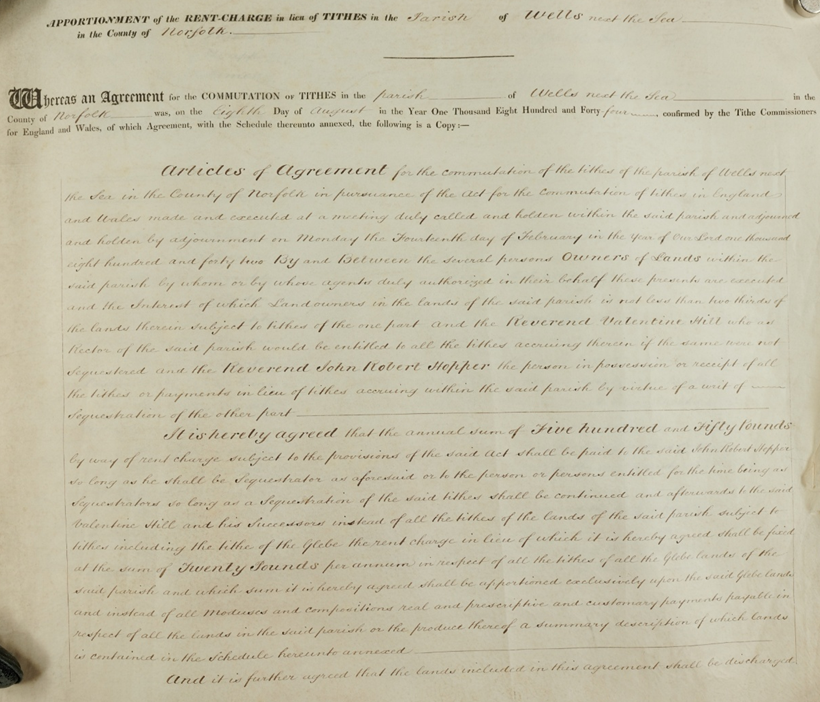 APPORTIONMENT of the RENT-CHARGE in lieu of TITHES in the Parish of Wells next the Sea
in the County of Norfolk.
Whereas an Agreement for the COMMUTATION OF TITHES in the parish of Wells next the Sea in the
County of Norfolk was, on the Eighth Day of August in the Year One Thousand Eight Hundred and Forty four, confirmed by the Tithe Commissioners
for England and Wales, of which Agreement, with the Schedule thereunto annexed, the following is a Copy:—
Articles of Agreement for the commutation of the tithes of the parish of Wells next
the Sea in the County of Norfolk in pursuance of the Act for the Commutation of tithes in England
and Wales made and executed at a meeting duly called and holden within the said parish and adjourned
and holden by adjournment on Monday the Fourteenth day of February in the Year of Our Lord one thousand
eight hundred and forty two By and Between the several persons Owners of Lands within the
said parish by whom or by whose agents duly authorized in their behalf these presents are executed
and the Interest of which Landowners in the lands of the said parish is not less than two thirds of
the lands therein subject to tithes of the one part And the Reverend Valentine Hill who as
Rector of the said parish would be entitled to all the tithes accruing therein if the same were not
Sequestered and the Reverend John Robert Hopper the person in possession or receipt of all
the tithes or payments in lieu of tithes accruing within the said parish by virtue of a writ of
Sequestration of the other part
It is hereby agreed that the annual sum of Five hundred and Fifty Pounds
by way of rent charge subject to the provisions of the said Act shall be paid to the said John Robert Hopper
so long as he shall be Sequestrator as aforesaid or to the person or persons entitled for the time being as
Sequestrators so long as a Sequestration of the said tithes shall be continued and afterwards to the said
Valentine Hill and his Successors instead of all the tithes of the lands of the said parish subject to
tithes including the tithe of the Glebe the rent charge in lieu of which it is hereby agreed shall be fixed
at the sum of Twenty Pounds per annum in respect of all the tithes of all the Glebe lands of the
said parish and which sum it is hereby agreed shall be apportioned exclusively upon the said Glebe lands
and instead of all Moduses and compositions real and prescriptive and customary payments payable in
respect of all the lands in the said parish or the produce thereof a summary description of which lands
is contained in the Schedule hereunto annexed
And it is further agreed that the lands included in this agreement shall be discharged